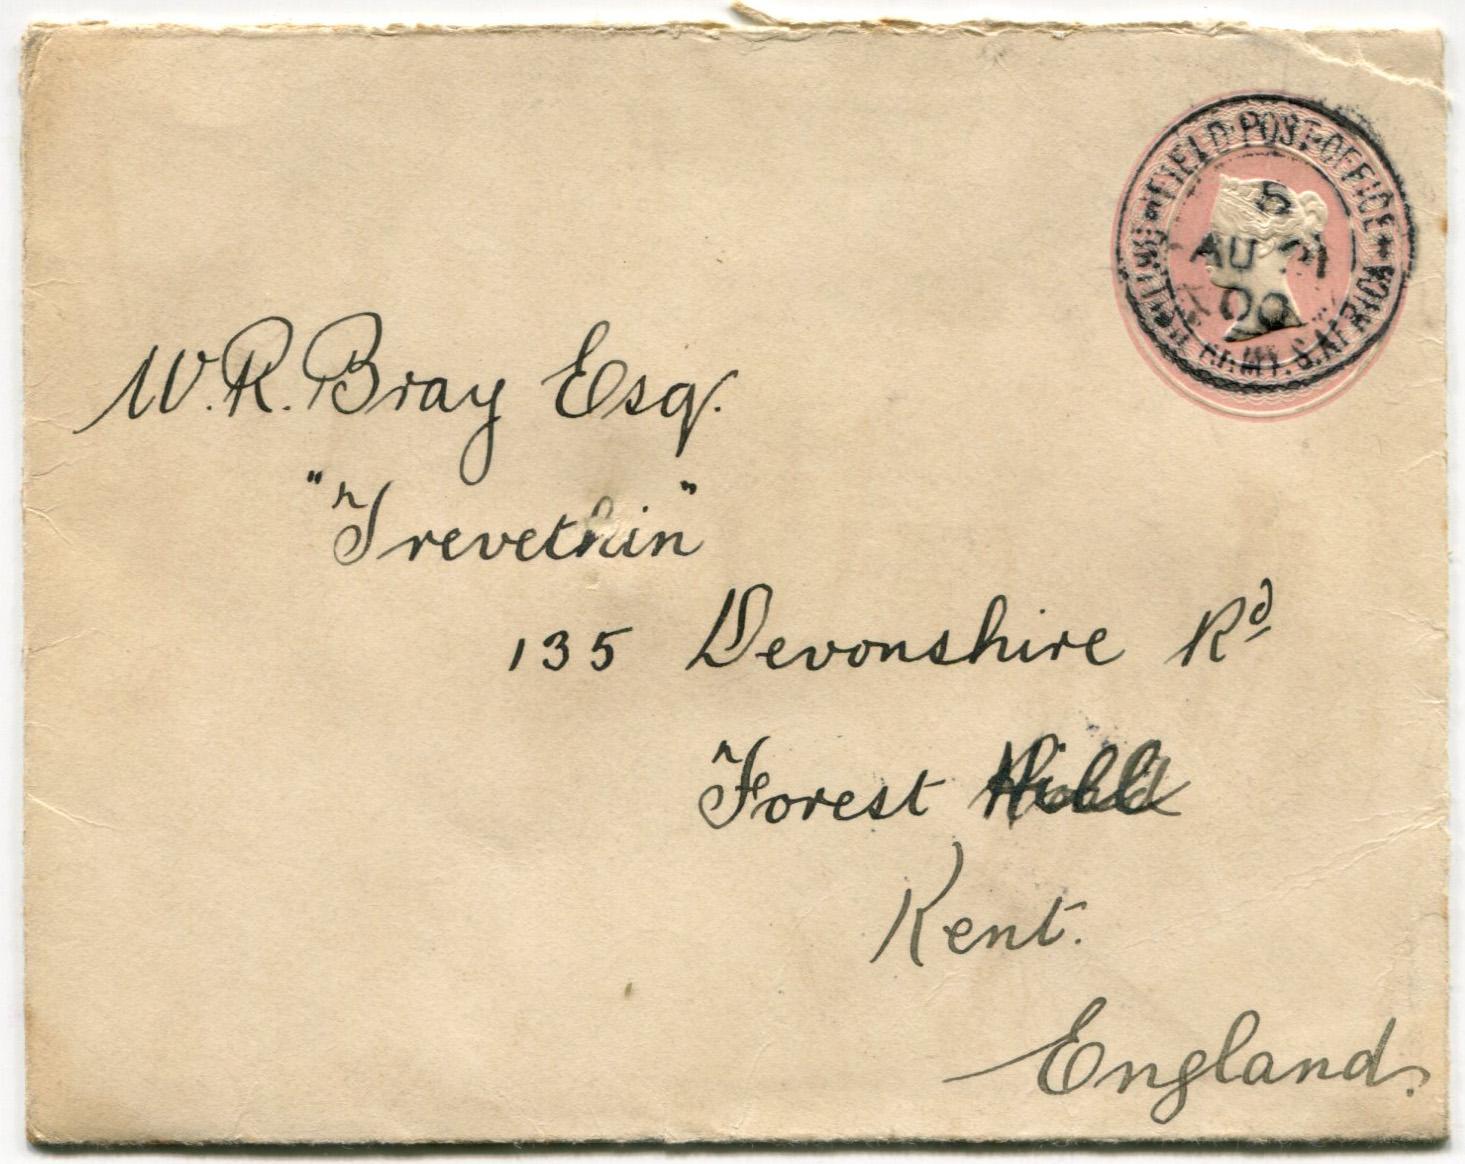 FIELD POST OFFICE
BRITISH ARMY. S. AFRICA
5
AU 21
00
W. R. Bray Esq.
"Trevethin"
135 Devonshire Rd
Forest Hill
Kent.
England.